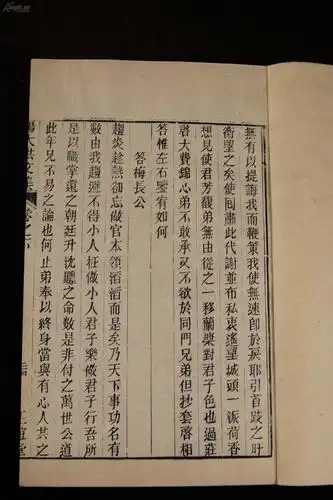 無有以提誨我而鞭策我使無速卽於戾耶引首跂之盱
衡望之矣使囘肅此代謝並布私衷遙望城頭一派荷香
想見使君芳馥弟無由從之一移蘭槳對君子色也過莊
啓大費錦心弟不敢承又不欲於同門兄弟但抄套啓相
答惟左右鑒宥如何
答梅長公
趨炎趁熱卻忘做官本領滔滔而是矣乃天下事功名有
數由我趨避不得小人枉做小人君子樂做君子行吾所
是以職掌還之朝廷升沈聽之命數是非付之萬世公道
此年兄不易之論也何止弟奉以終身當與有心人共之
楊大洪文集
卷之下